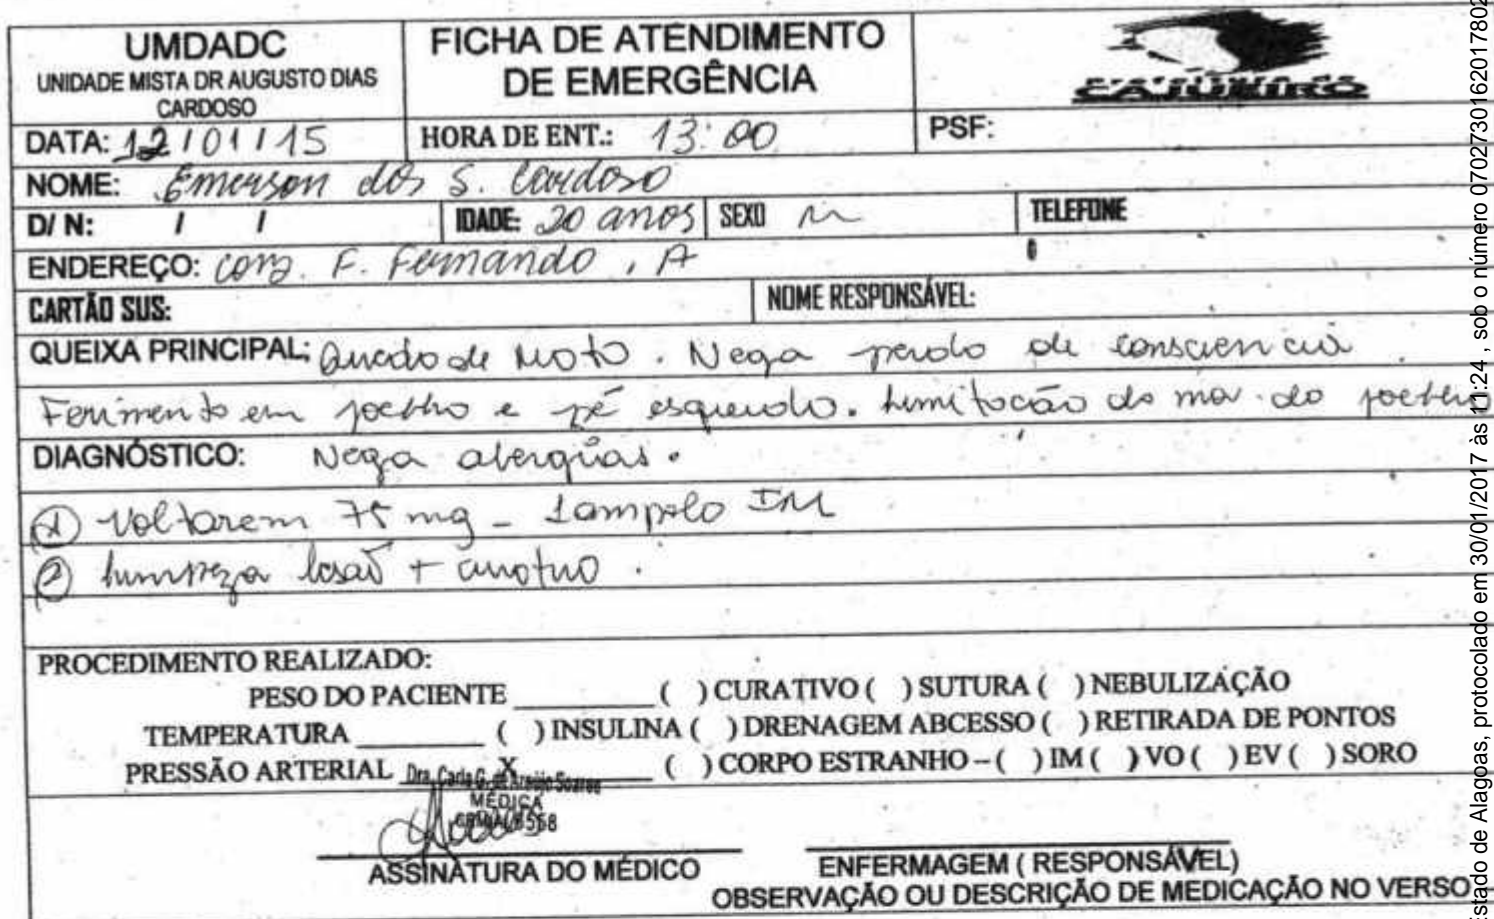 UMDADC
UNIDADE MISTA DR AUGUSTO DIAS
CARDOSO
FICHA DE ATENDIMENTO
DE EMERGÊNCIA
CAJUEIRO
DATA: 12/01/15
HORA DE ENT.: 13:00
PSF:
NOME: Emerson dos S. Cardoso
D/ N: / /
IDADE: 20 anos
SEXO M
TELEFONE
ENDEREÇO: conj. F. Fernando, A
CARTÃO SUS:
NOME RESPONSÁVEL:
QUEIXA PRINCIPAL: Queda de moto. Nega perda de consciencia.
Ferimento em joelho e pé esquerdo. Limitação do mov. do joelho
DIAGNÓSTICO: Nega alergias.
① Voltarem 75 mg - 1 ampola IM
② Limpeza lesão + curativo.
PROCEDIMENTO REALIZADO:
PESO DO PACIENTE ________ ( ) CURATIVO ( ) SUTURA ( ) NEBULIZAÇÃO
TEMPERATURA ________ ( ) INSULINA ( ) DRENAGEM ABCESSO ( ) RETIRADA DE PONTOS
PRESSÃO ARTERIAL ____X____ ( ) CORPO ESTRANHO – ( ) IM ( ) VO ( ) EV ( ) SORO
Dra. Carla G. de Araújo Soares
MÉDICA
CRM/AL 6558
ASSINATURA DO MÉDICO
ENFERMAGEM ( RESPONSÁVEL)
OBSERVAÇÃO OU DESCRIÇÃO DE MEDICAÇÃO NO VERSO
Estado de Alagoas, protocolado em 30/01/2017 às 11:24 , sob o número 0702730162017802